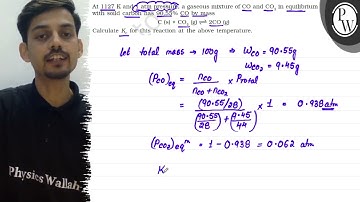 At 1127 K and 1 atm pressure, a gaseous mixture of CO and CO₂ in equilibrium
with solid carbon has 90.55% CO by mass.
C (s) + CO₂ (g) ⇌ 2CO (g)
Calculate Kc for this reaction at the above temperature.
let total mass → 100g ⇒ WCO = 90.55g
WCO₂ = 9.45g
(PCO)eq = nCO / nCO + nCO₂ × Ptotal
= (90.55/28) / (90.55/28) + (9.45/44) × 1 = 0.938 atm
(PCO₂)eqm = 1 - 0.938 = 0.062 atm
K
Physics Wallah